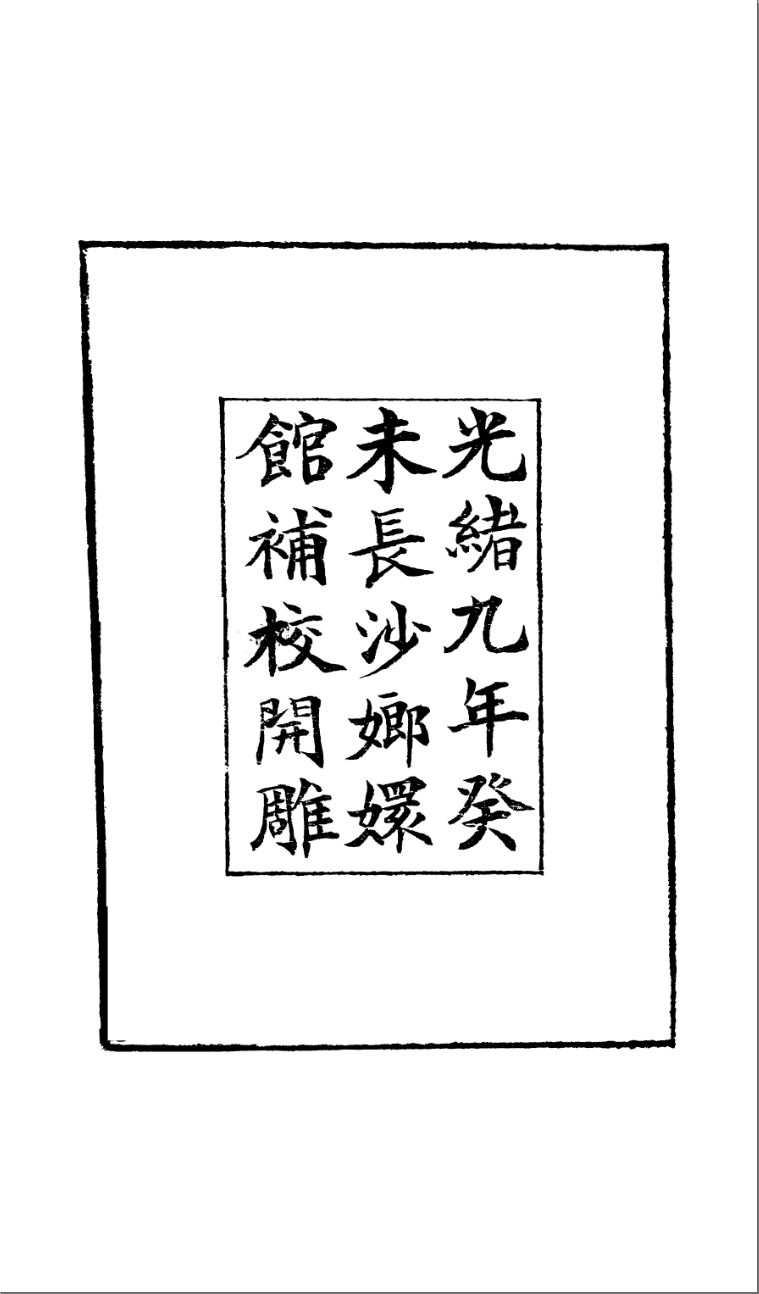 光緒九年癸
未長沙嫏嬛
館補校開雕